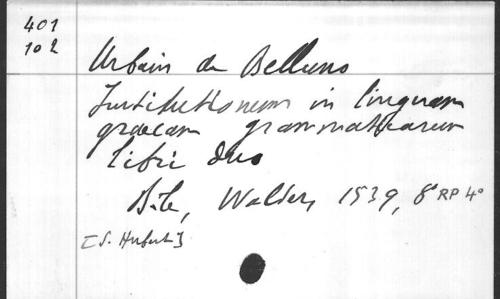 401
102
Urbain de Belluno
Institutionum in linguam
graecam grammaticarum
libri duo
Bâle, Walder, 1539, 8° RP 4°
[S. Hubert]